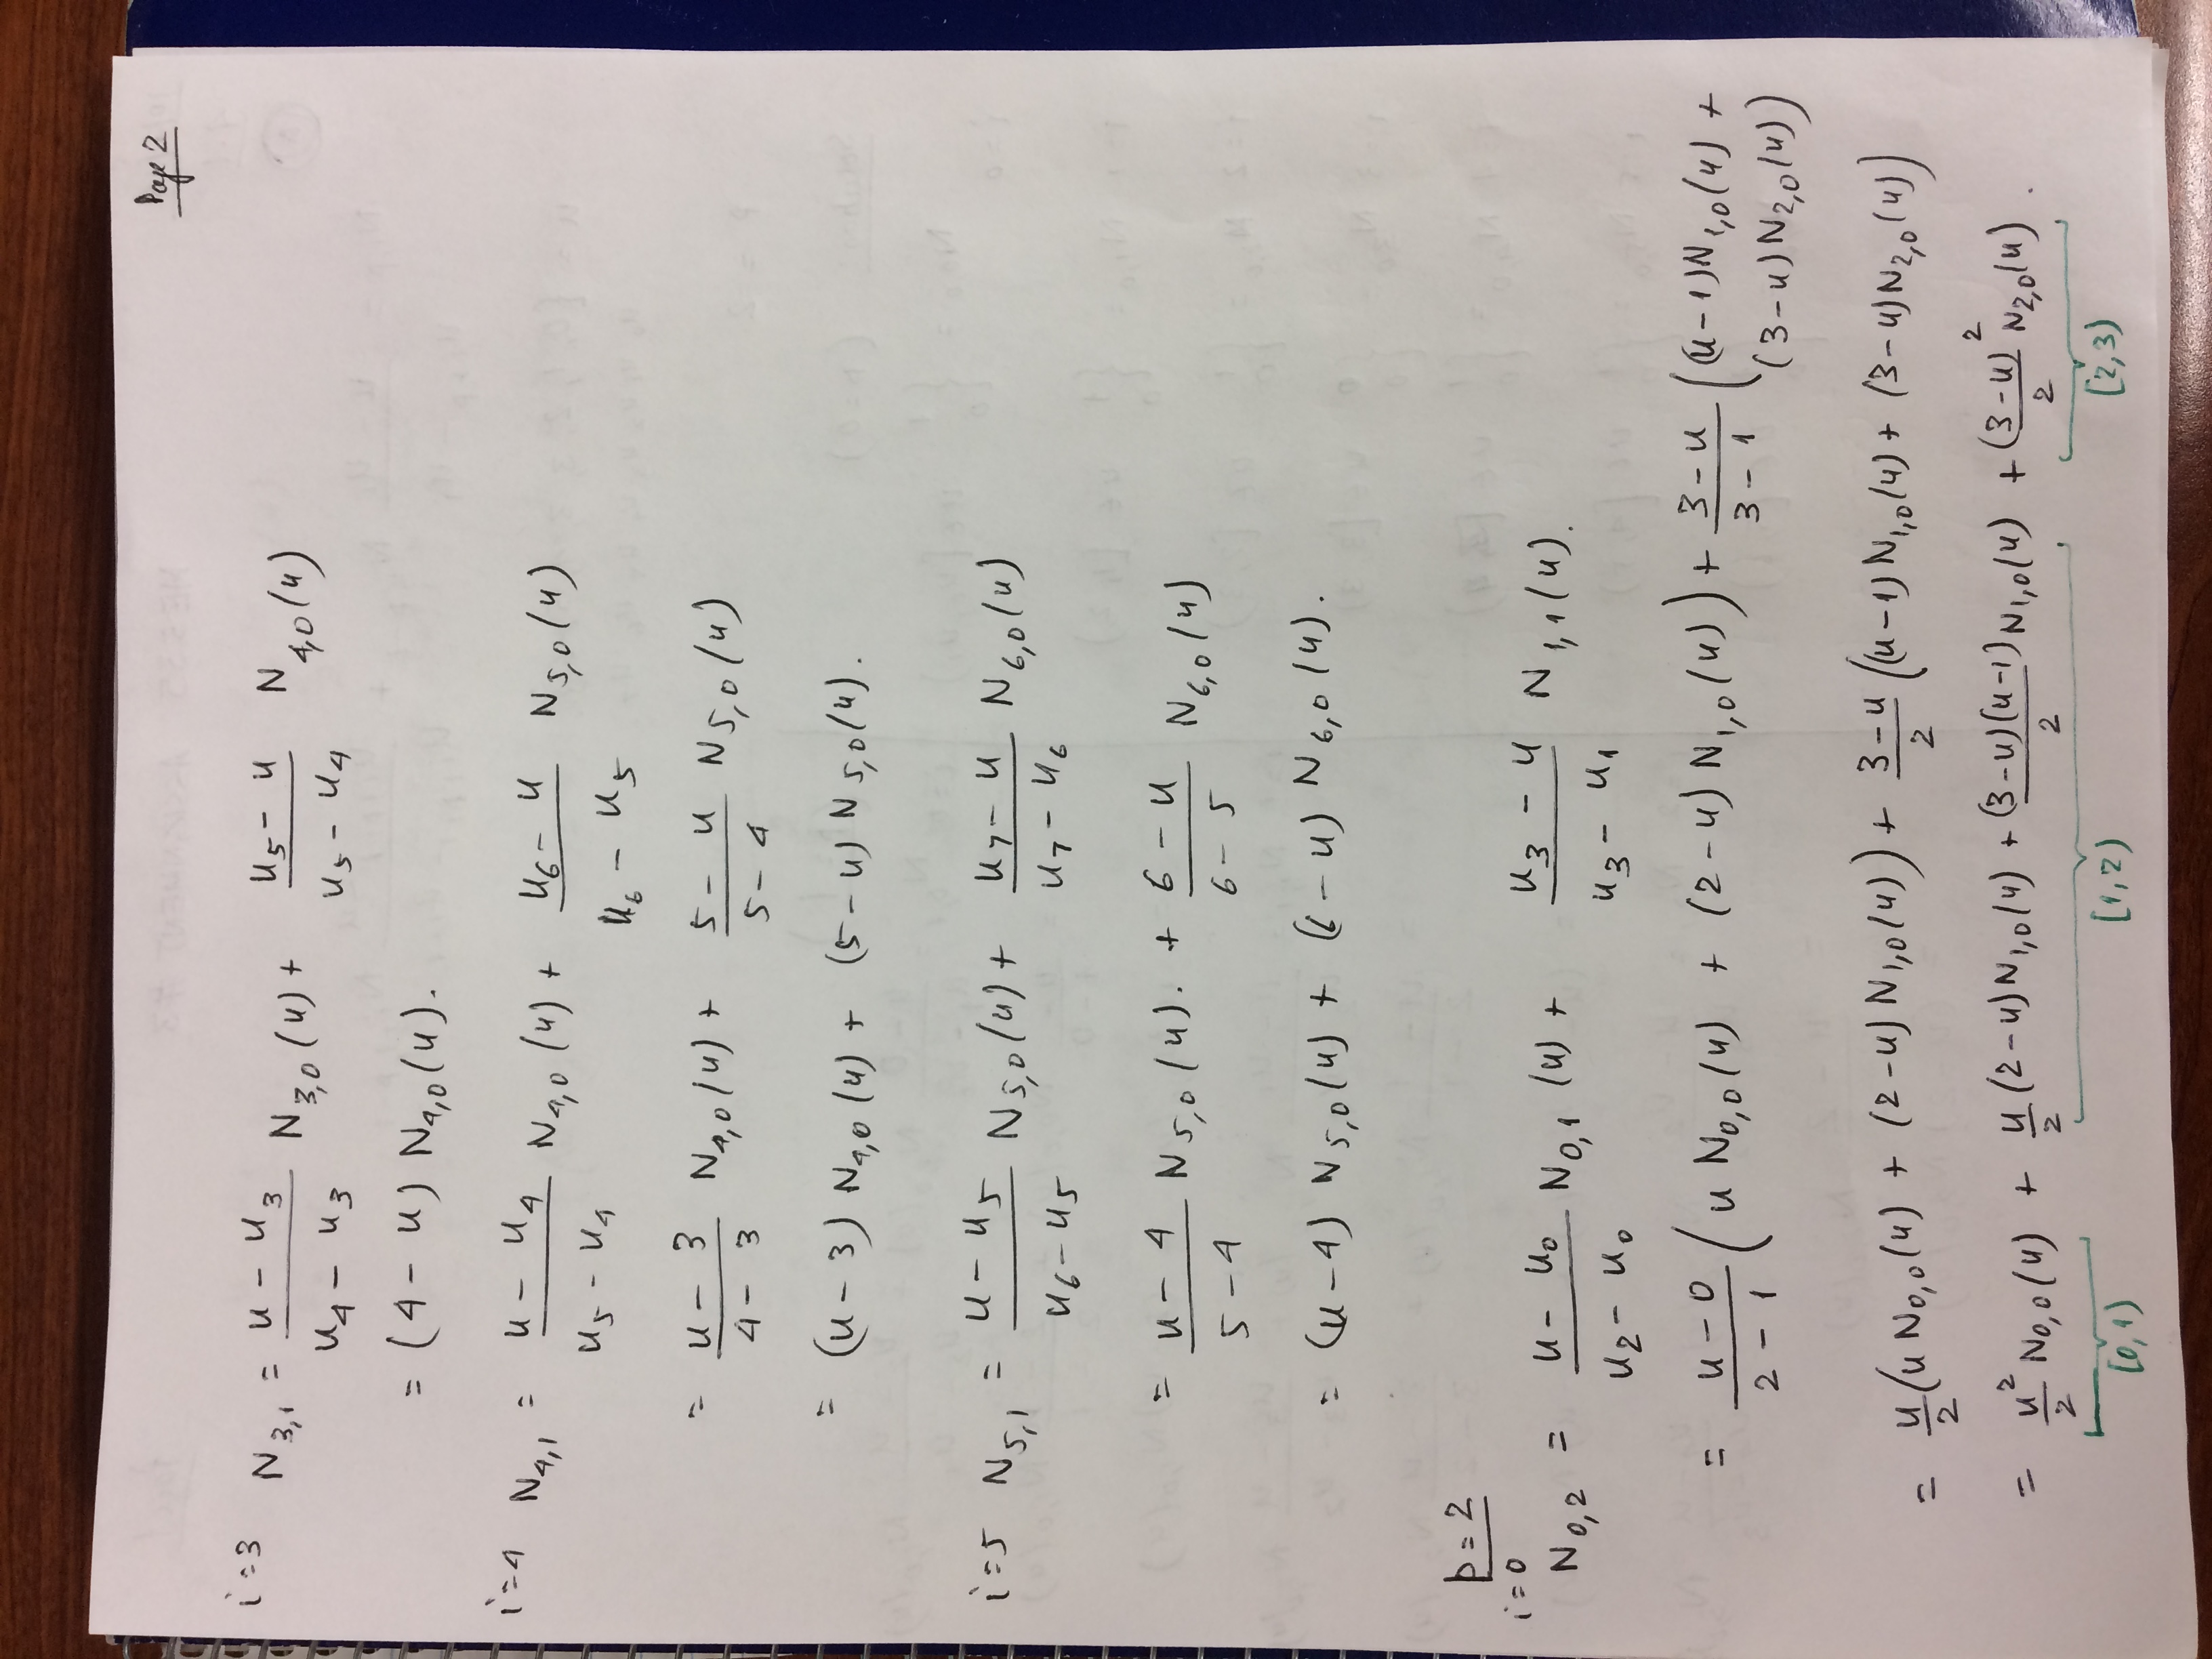 Page 2
i=3 N3,1 = (u - u3)/(u4 - u3) N3,0(u) + (u5 - u)/(u5 - u4) N4,0(u)
= (4 - u) N4,0(u).
i=4 N4,1 = (u - u4)/(u5 - u4) N4,0(u) + (u6 - u)/(u6 - u5) N5,0(u)
= (u - 3)/(4 - 3) N4,0(u) + (5 - u)/(5 - 4) N5,0(u)
= (u - 3) N4,0(u) + (5 - u) N5,0(u).
i=5 N5,1 = (u - u5)/(u6 - u5) N5,0(u) + (u7 - u)/(u7 - u6) N6,0(u)
= (u - 4)/(5 - 4) N5,0(u). + (6 - u)/(6 - 5) N6,0(u)
= (u - 4) N5,0(u) + (6 - u) N6,0(u).
p=2
i=0
N0,2 = (u - u0)/(u2 - u0) N0,1(u) + (u3 - u)/(u3 - u1) N1,1(u).
= (u - 0)/(2 - 1) (u N0,0(u) + (2 - u) N1,0(u)) + (3 - u)/(3 - 1) ((u - 1) N1,0(u) +
(3 - u) N2,0(u))
= u/2 (u N0,0(u) + (2 - u) N1,0(u)) + (3 - u)/2 ((u - 1) N1,0(u) + (3 - u) N2,0(u))
= u²/2 N0,0(u) + u/2 (2 - u) N1,0(u) + (3 - u)(u - 1)/2 N1,0(u) + (3 - u)²/2 N2,0(u).
[0,1) [1,2) [2,3)